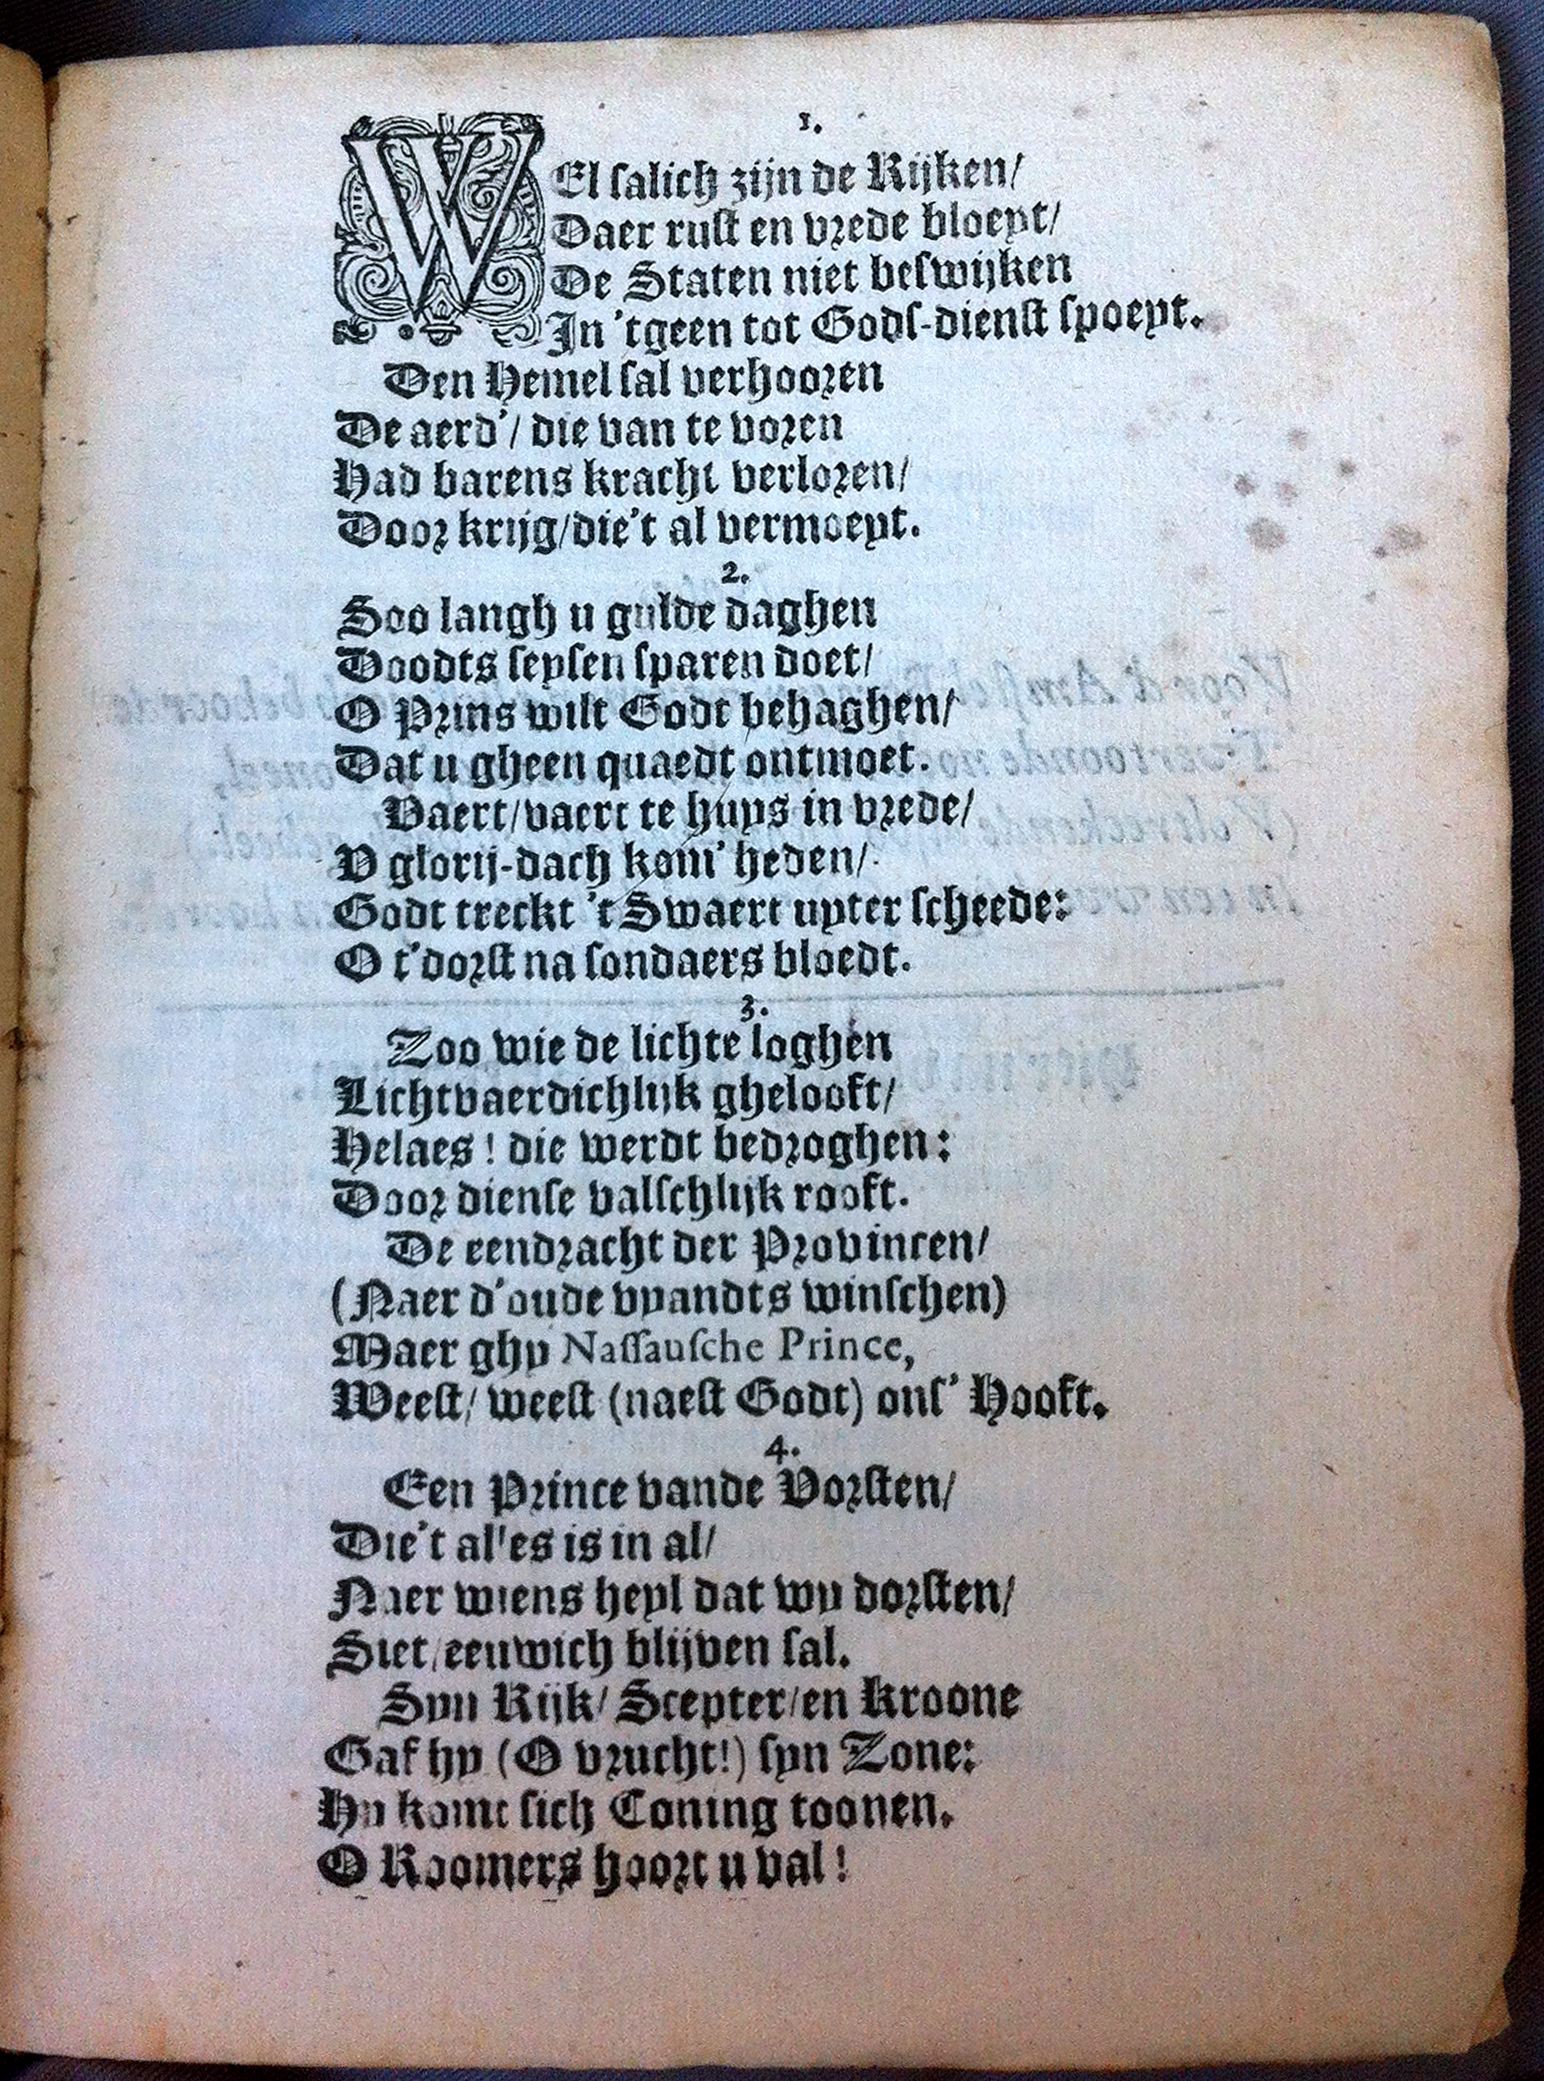 1.
WEl ſalich zijn de Rijken/
Daer ruſt en vrede bloeyt/
De Staten niet beſwijken
In 'tgeen tot Godſ-dienſt ſpoeyt.
Den Hemel ſal verhooren
De aerd'/ die van te voren
Had barens kracht verloren/
Door krijg/die't al vermoeyt.
2.
Soo langh u gulde daghen
Doodts ſeyſen ſparen doet/
O Prins wilt Godt behaghen/
Dat u gheen quaedt ontmoet.
Vaert/vaert te huys in vrede/
V glorij-dach kom' heden/
Godt treckt 't Swaert uyter ſcheede:
O t'dorſt na ſondaers bloedt.
3.
Zoo wie de lichte loghen
Lichtvaerdichlijk ghelooft/
Helaes! die werdt bedroghen:
Door dienſe valſchlijk rooft.
De eendracht der Provincen/
(Naer d'oude vyandts winſchen)
Maer ghy Naſſauſche Prince,
Weeſt/ weeſt (naeſt Godt) onſ' Hooft.
4.
Een Prince vande Vorſten/
Die't alles is in al/
Naer wiens heyl dat wy dorſten/
Siet/eeuwich blijven ſal.
Syn Rijk/ Scepter/en Kroone
Gaf hy (O vrucht!) ſyn Zone:
Hy komt ſich Coning toonen.
O Roomers hoort u val!